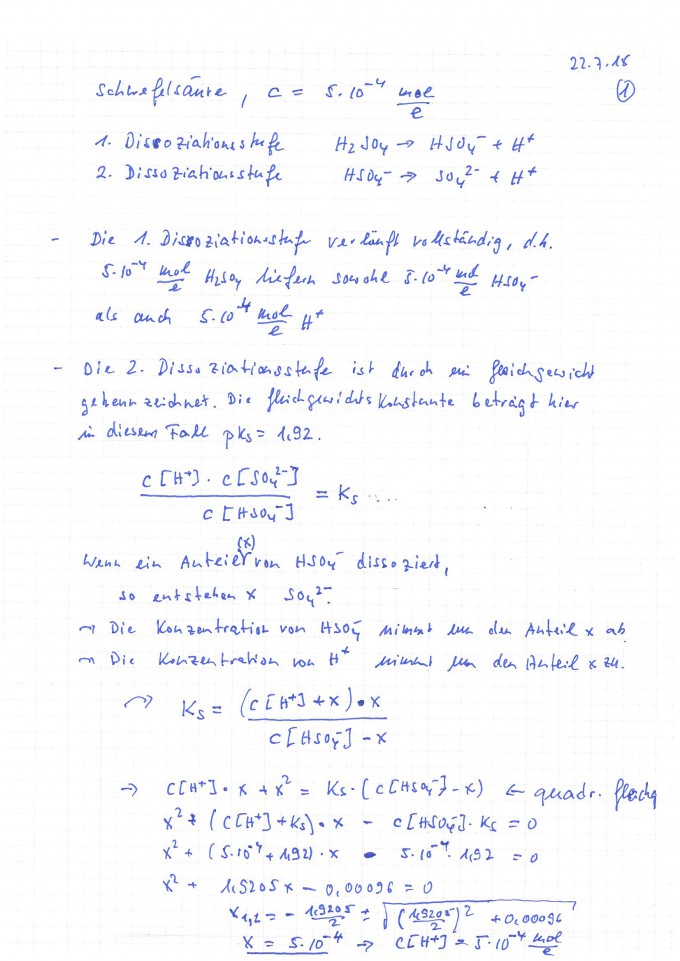 22.7.18
Schwefelsäure, c = 5·10⁻⁴ mol/l
①
1. Dissoziationsstufe H₂SO₄ → HSO₄⁻ + H⁺
2. Dissoziationsstufe HSO₄⁻ → SO₄²⁻ + H⁺
- Die 1. Dissoziationsstufe verläuft vollständig, d.h.
5·10⁻⁴ mol/l H₂SO₄ liefern sowohl 5·10⁻⁴ mol/l HSO₄⁻
als auch 5·10⁻⁴ mol/l H⁺
- Die 2. Dissoziationsstufe ist durch ein Gleichgewicht
gekennzeichnet. Die Gleichgewichtskonstante beträgt hier
in diesem Fall pKs = 1,92.
c[H⁺] · c[SO₄²⁻] / c[HSO₄⁻] = Ks ....
Wenn ein Anteil (x) von HSO₄⁻ dissoziiert,
so entstehen x SO₄²⁻.
→ Die Konzentration von HSO₄⁻ nimmt um den Anteil x ab
→ Die Konzentration von H⁺ nimmt um den Anteil x zu.
→ Ks = (c[H⁺] + x) · x / c[HSO₄⁻] - x
→ c[H⁺] · x + x² = Ks · (c[HSO₄⁻] - x) ← quadr. Gleichg
x² + (c[H⁺] + Ks) · x - c[HSO₄⁻] · Ks = 0
x² + (5·10⁻⁴ + 1,92) · x - 5·10⁻⁴ · 1,92 = 0
x² + 1,9205x - 0,00096 = 0
x₁,₂ = - 1,9205/2 ± √((1,9205/2)² + 0,00096)
x = 5·10⁻⁴ → c[H⁺] = 5·10⁻⁴ mol/l